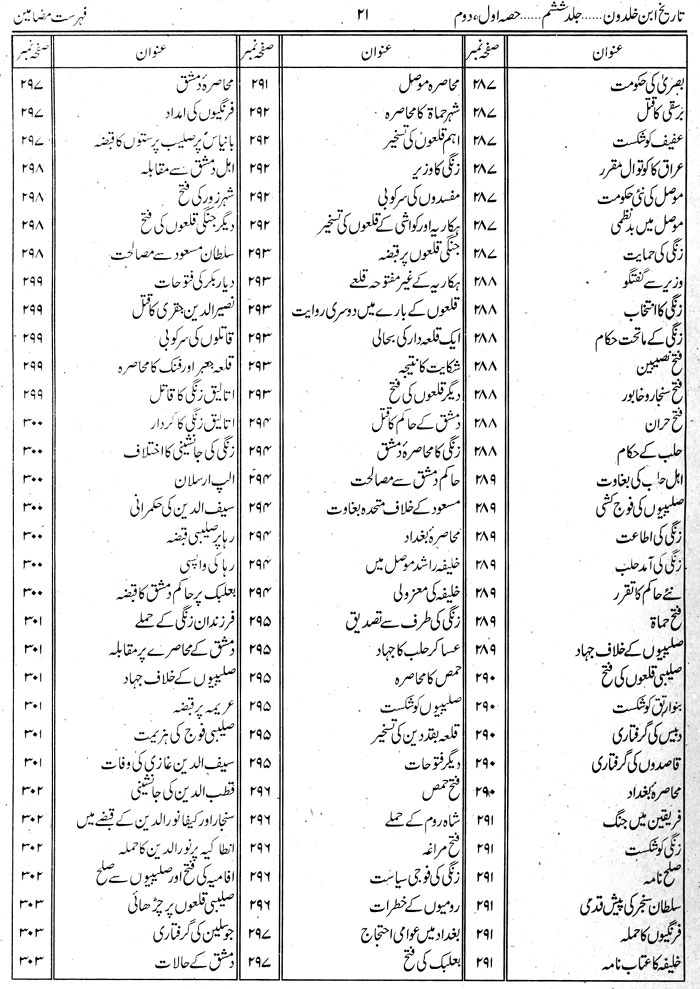 تاریخ ابن خلدون......جلد ششم......حصہ اول، دوم ۲۱ فہرست مضامین
عنوان صفحہ نمبر
بصریٰ کی حکومت ۲۸۷
برسقی کا قتل ۲۸۷
عفیف کو شکست ۲۸۷
عراق کا کوتوال مقرر ۲۸۷
موصل کی نئی حکومت ۲۸۷
موصل میں بدنظمی ۲۸۷
زنگی کی حمایت ۲۸۷
وزیر سے گفتگو ۲۸۸
زنگی کا انتخاب ۲۸۸
زنگی کے ماتحت حکام ۲۸۸
فتح نصیبین ۲۸۸
فتح سنجار و خابور ۲۸۸
فتح حران ۲۸۸
حلب کے حکام ۲۸۸
اہل حلب کی بغاوت ۲۸۹
صلیبیوں کی فوج کشی ۲۸۹
زنگی کی اطاعت ۲۸۹
زنگی کی آمد حلب ۲۸۹
نئے حاکم کا تقرر ۲۸۹
فتح حماۃ ۲۸۹
صلیبیوں کے خلاف جہاد ۲۸۹
صلیبی قلعوں کی فتح ۲۹۰
بنوارتق کو شکست ۲۹۰
دبیس کی گرفتاری ۲۹۰
قاصدوں کی گرفتاری ۲۹۰
محاصرۂ بغداد ۲۹۰
فریقین میں جنگ ۲۹۱
زنگی کو شکست ۲۹۱
صلح نامہ ۲۹۱
سلطان سنجر کی پیش قدمی ۲۹۱
فرنگیوں کا حملہ ۲۹۱
خلیفہ کا عتاب نامہ ۲۹۱
عنوان صفحہ نمبر
محاصرہ موصل ۲۹۱
شہر حماۃ کا محاصرہ ۲۹۲
اہم قلعوں کی تسخیر ۲۹۲
زنگی کا وزیر ۲۹۲
مفسدوں کی سرکوبی ۲۹۲
ہکاریہ اور کواشی کے قلعوں کی تسخیر ۲۹۲
جنگی قلعوں پر قبضہ ۲۹۳
ہکاریہ کے غیر مفتوحہ قلعے ۲۹۳
قلعوں کے بارے میں دوسری روایت ۲۹۳
ایک قلعہ دار کی بحالی ۲۹۳
شکایت کا نتیجہ ۲۹۳
دیگر قلعوں کی فتح ۲۹۳
دمشق کے حاکم کا قتل ۲۹۴
زنگی کا محاصرہ دمشق ۲۹۴
حاکم دمشق سے مصالحت ۲۹۴
مسعود کے خلاف متحدہ بغاوت ۲۹۴
محاصرۂ بغداد ۲۹۴
خلیفہ راشد موصل میں ۲۹۴
خلیفہ کی معزولی ۲۹۴
زنگی کی طرف سے تصدیق ۲۹۵
عساکر حلب کا جہاد ۲۹۵
حمص کا محاصرہ ۲۹۵
صلیبیوں کو شکست ۲۹۵
قلعہ بقدین کی تسخیر ۲۹۵
دیگر فتوحات ۲۹۵
فتح حمص ۲۹۶
شاہ روم کے حملے ۲۹۶
فتح مراغہ ۲۹۶
زنگی کی فوجی سیاست ۲۹۶
رومیوں کے خطرات ۲۹۶
بغداد میں عوامی احتجاج ۲۹۷
بعلبک کی فتح ۲۹۷
عنوان صفحہ نمبر
محاصرۂ دمشق ۲۹۷
فرنگیوں کی امداد ۲۹۷
بانیاس پر صلیب پرستوں کا قبضہ ۲۹۷
اہل دمشق سے مقابلہ ۲۹۸
شہر زور کی فتح ۲۹۸
دیگر جنگی قلعوں کی فتح ۲۹۸
سلطان مسعود سے مصالحت ۲۹۸
دیار بکر کی فتوحات ۲۹۹
نصیر الدین جقری کا قتل ۲۹۹
قاتلوں کی سرکوبی ۲۹۹
قلعہ جعبر اور فنک کا محاصرہ ۲۹۹
اتالیق زنگی کا قاتل ۲۹۹
اتالیق زنگی کا کردار ۳۰۰
زنگی کی جانشینی کا اختلاف ۳۰۰
الپ ارسلان ۳۰۰
سیف الدین کی حکمرانی ۳۰۰
رہا پر صلیبی قبضہ ۳۰۰
رہا کی واپسی ۳۰۰
بعلبک پر حاکم دمشق کا قبضہ ۳۰۰
فرزندان زنگی کے حملے ۳۰۱
دمشق کے محاصرے پر مقابلہ ۳۰۱
صلیبیوں کے خلاف جہاد ۳۰۱
عریمہ پر قبضہ ۳۰۱
صلیبی فوج کی ہزیمت ۳۰۱
سیف الدین غازی کی وفات ۳۰۱
قطب الدین کی جانشینی ۳۰۲
سنجار اور کیفا نورالدین کے قبضے میں ۳۰۲
انطاکیہ پر نورالدین کا حملہ ۳۰۲
افامیہ کی فتح اور صلیبیوں سے صلح ۳۰۲
صلیبی قلعوں پر چڑھائی ۳۰۳
جوسلین کی گرفتاری ۳۰۳
دمشق کے حالات ۳۰۳